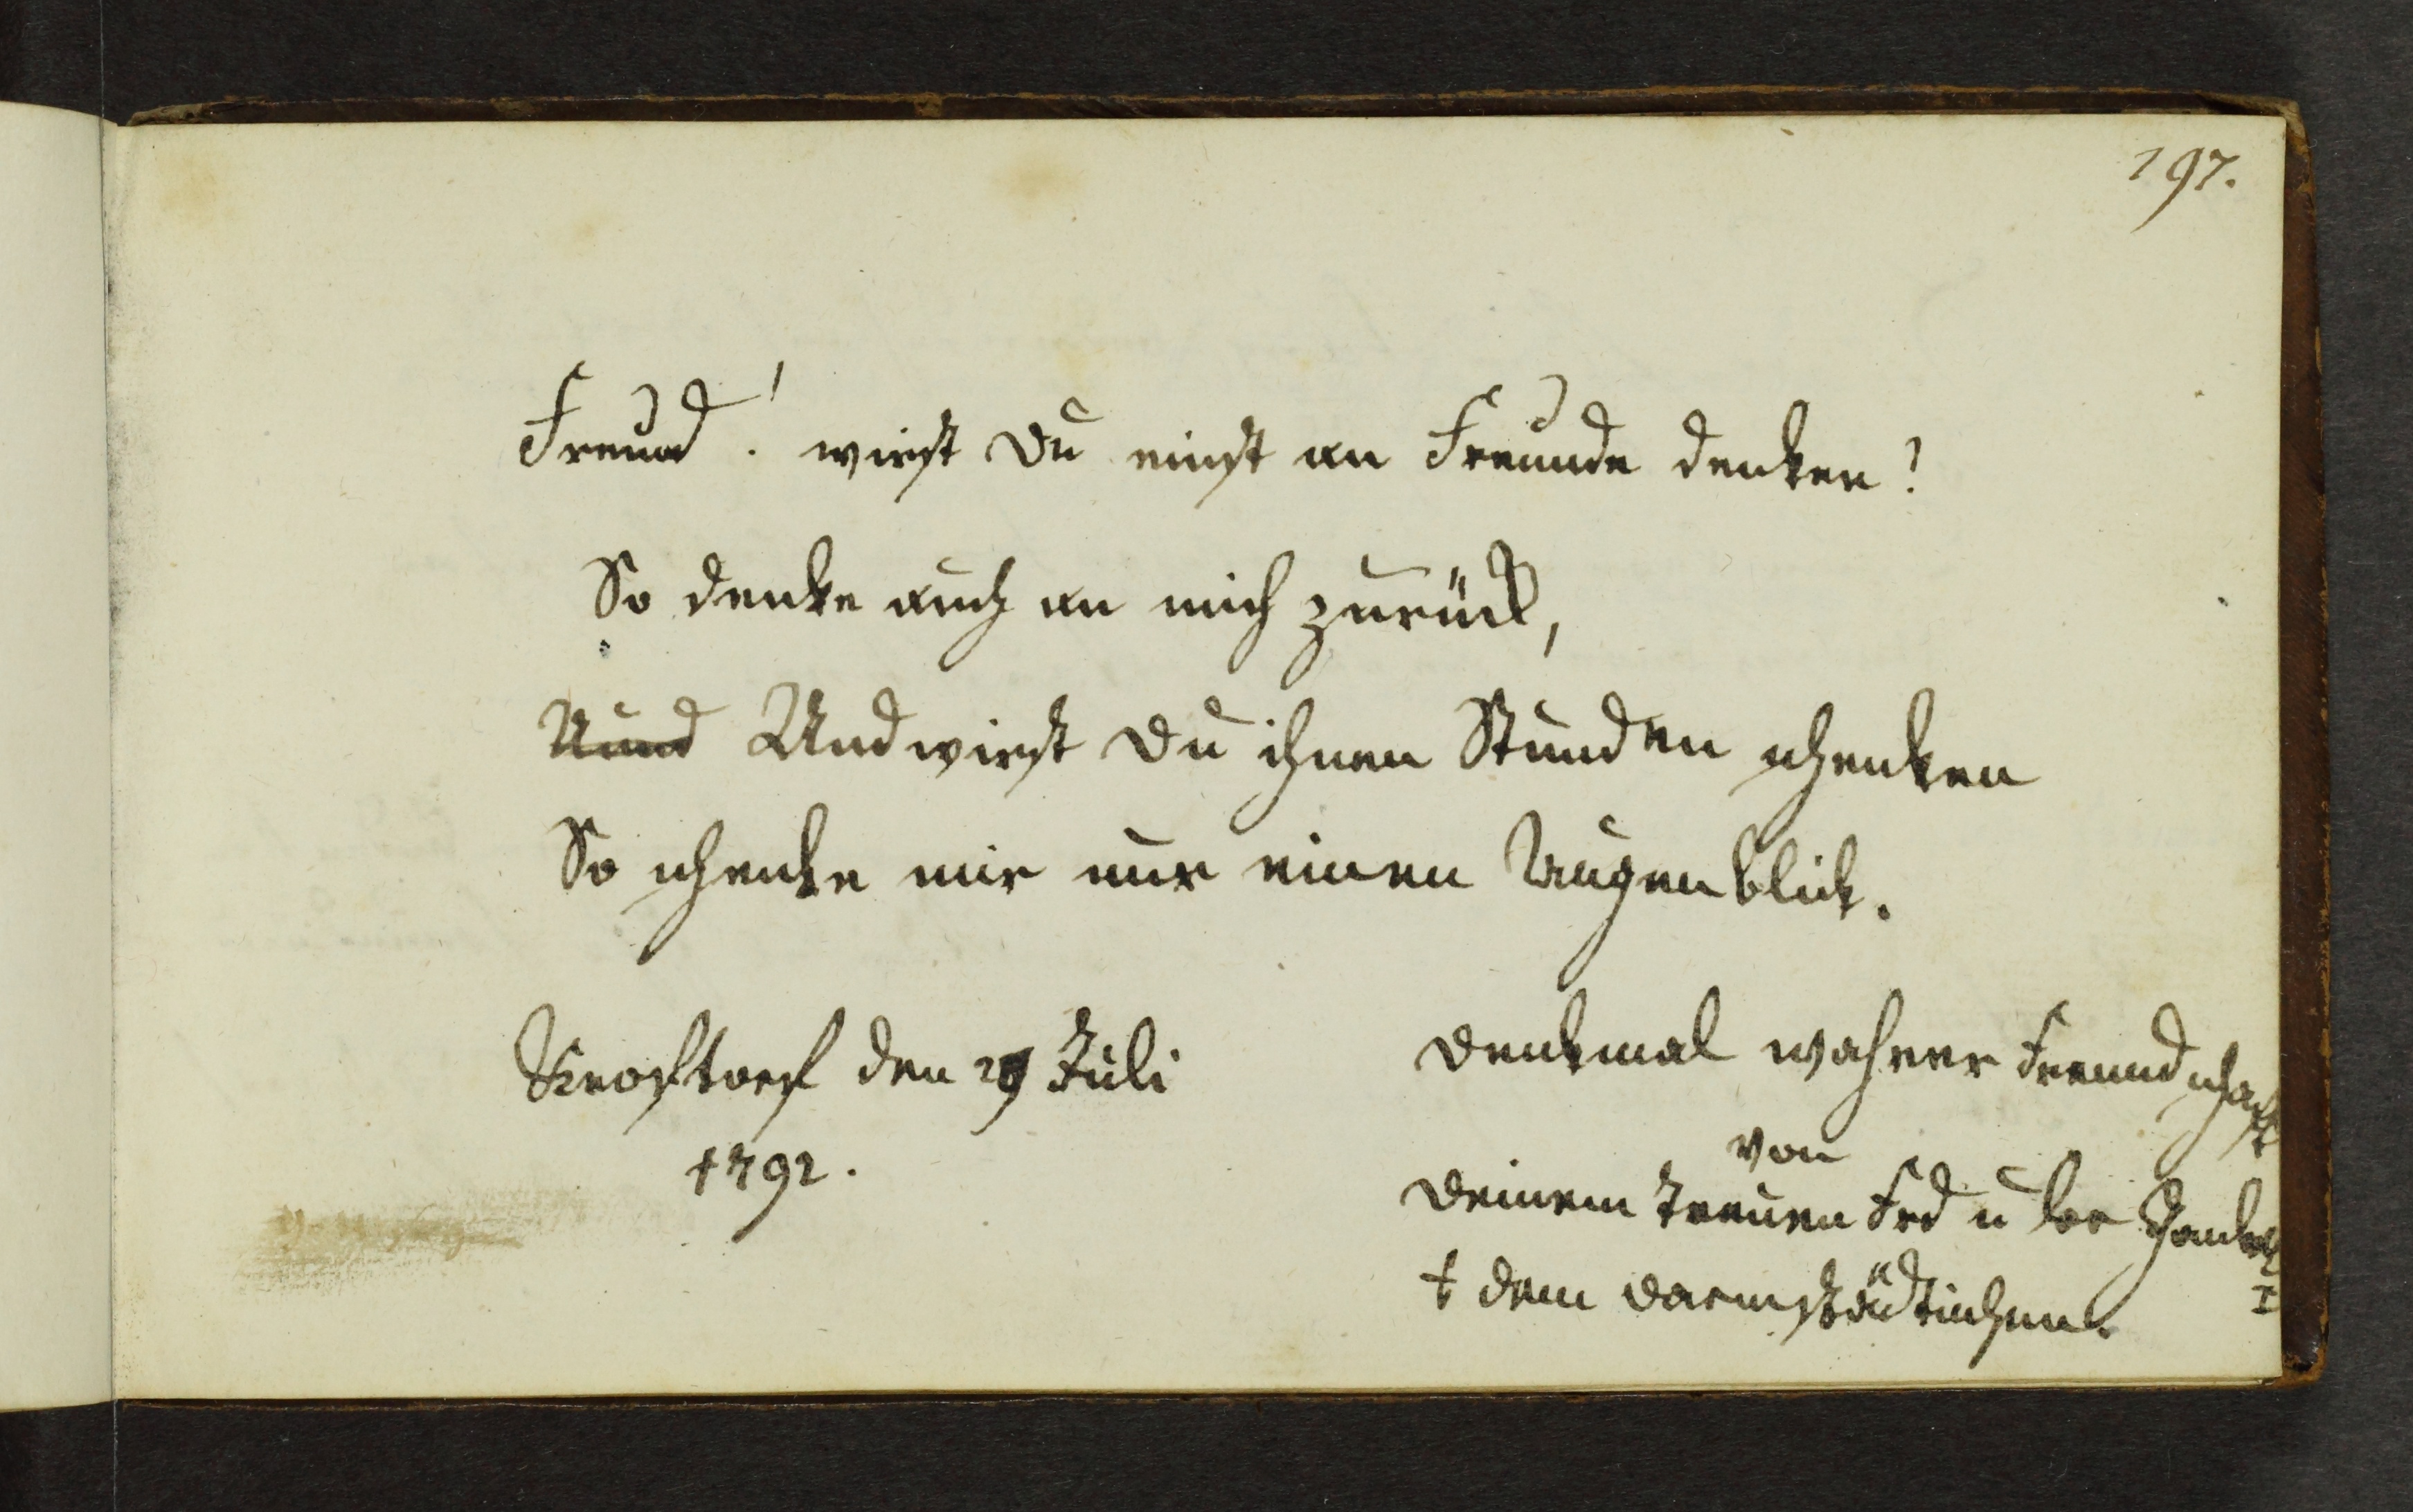 197.
Freund! wirst Du einst an Freunde denken?
So denke auch an mich zurück,
Uund Und wirst Du ihnen Stunden schenken
So schenke mir nur einen Augenblick.
den 29 Juli
1792.
Denkmal wahrer Freundschaft
von
Deinem treuen Frd u
dem Darmstädtischen.